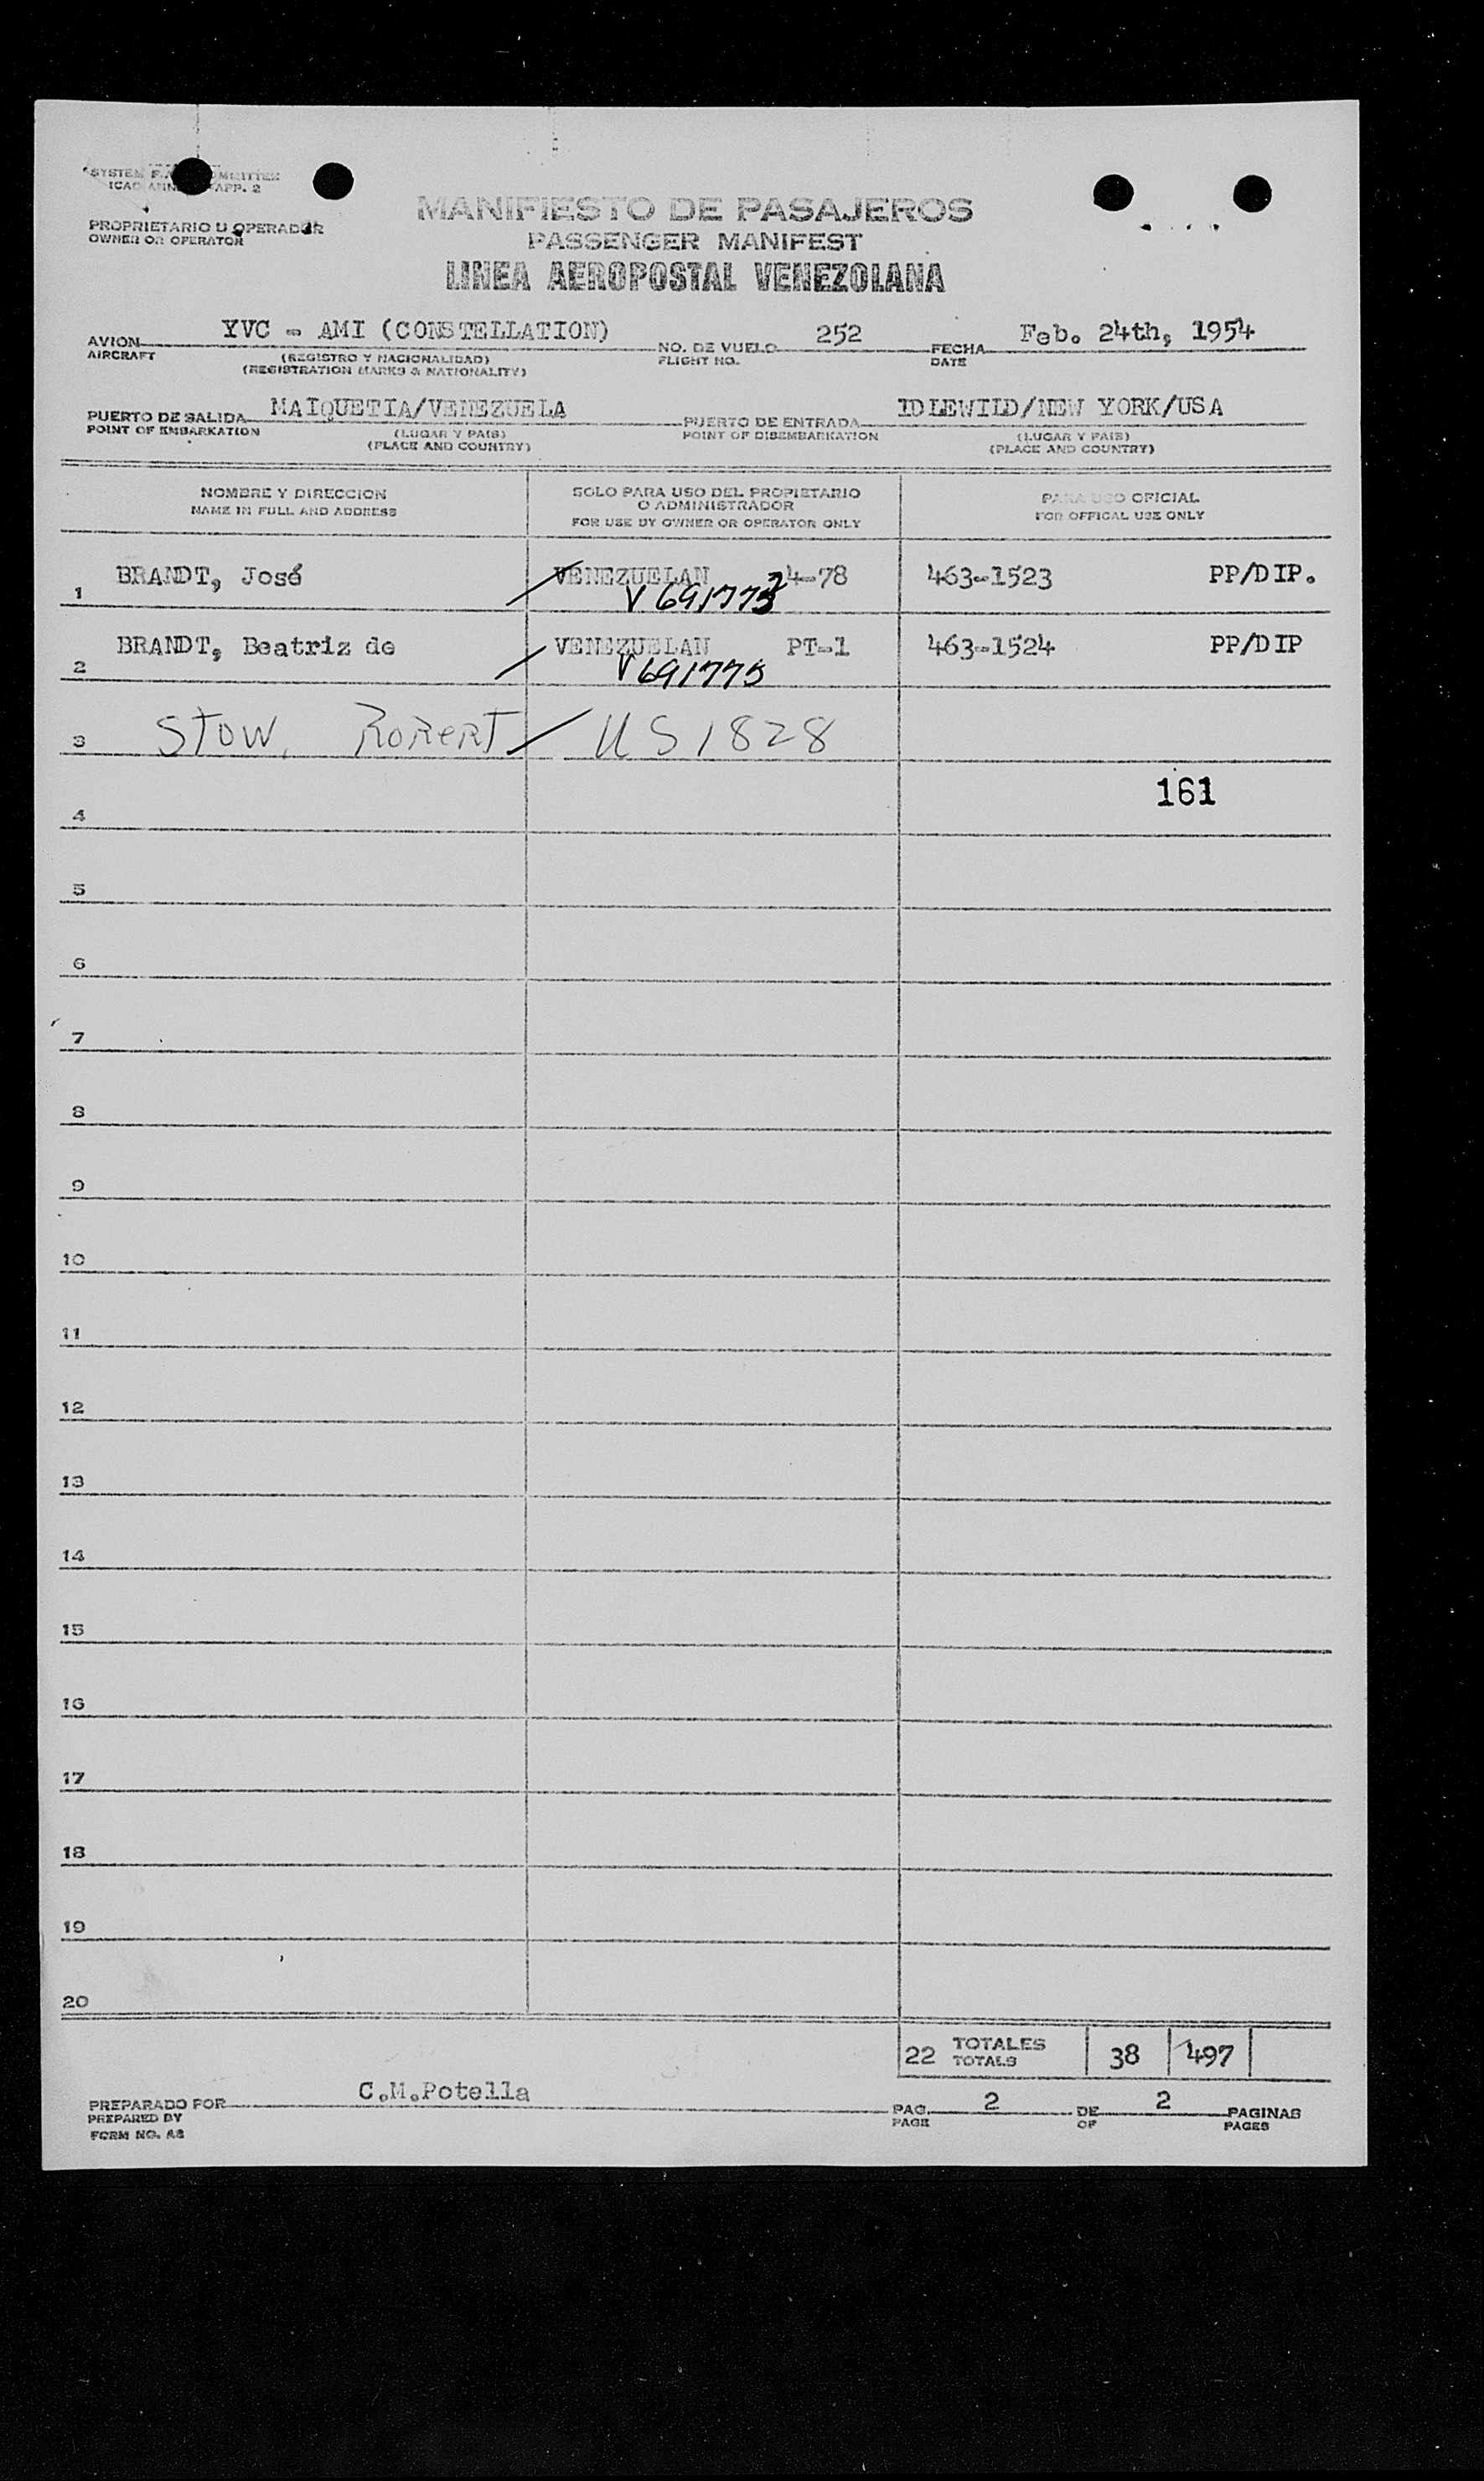 SYSTEM
ICAO APP. 2
PROPRIETARIO U OPERADOR
OWNER OR OPERATOR
MANIFIESTO DE PASAJEROS
PASSENGER MANIFEST
LINEA AEROPOSTAL VENEZOLANA
AVION YVC - AMI (CONSTELLATION) NO. DE VUELO 252 FECHA Feb. 24th, 1954
AIRCRAFT (REGISTRO Y NACIONALIDAD) FLIGHT NO. DATE
(REGISTRATION MARKS & NATIONALITY)
PUERTO DE SALIDA MAIQUETIA/VENEZUELA PUERTO DE ENTRADA IDLEWILD/NEW YORK/USA
POINT OF EMBARKATION (LUGAR Y PAIS) POINT OF DISEMBARKATION (LUGAR Y PAIS)
(PLACE AND COUNTRY) (PLACE AND COUNTRY)
NOMBRE Y DIRECCION SOLO PARA USO DEL PROPIETARIO PARA USO OFICIAL
NAME IN FULL AND ADDRESS O ADMINISTRADOR FOR OFFICAL USE ONLY
FOR USE BY OWNER OR OPERATOR ONLY
1 BRANDT, José VENEZUELAN 4-78 463-1523 PP/DIP.
2 BRANDT, Beatriz de VENEZUELAN PT-1 463-1524 PP/DIP
V691775
3 Stow, Robert US1828
161
4
5
6
7
8
9
10
11
12
13
14
15
16
17
18
19
20
22 TOTALES 38 497
TOTALS
PREPARADO POR C.M.Potella PAG. 2 DE 2 PAGINAS
PREPARED BY PAGE OF PAGES
FORM NO. A8